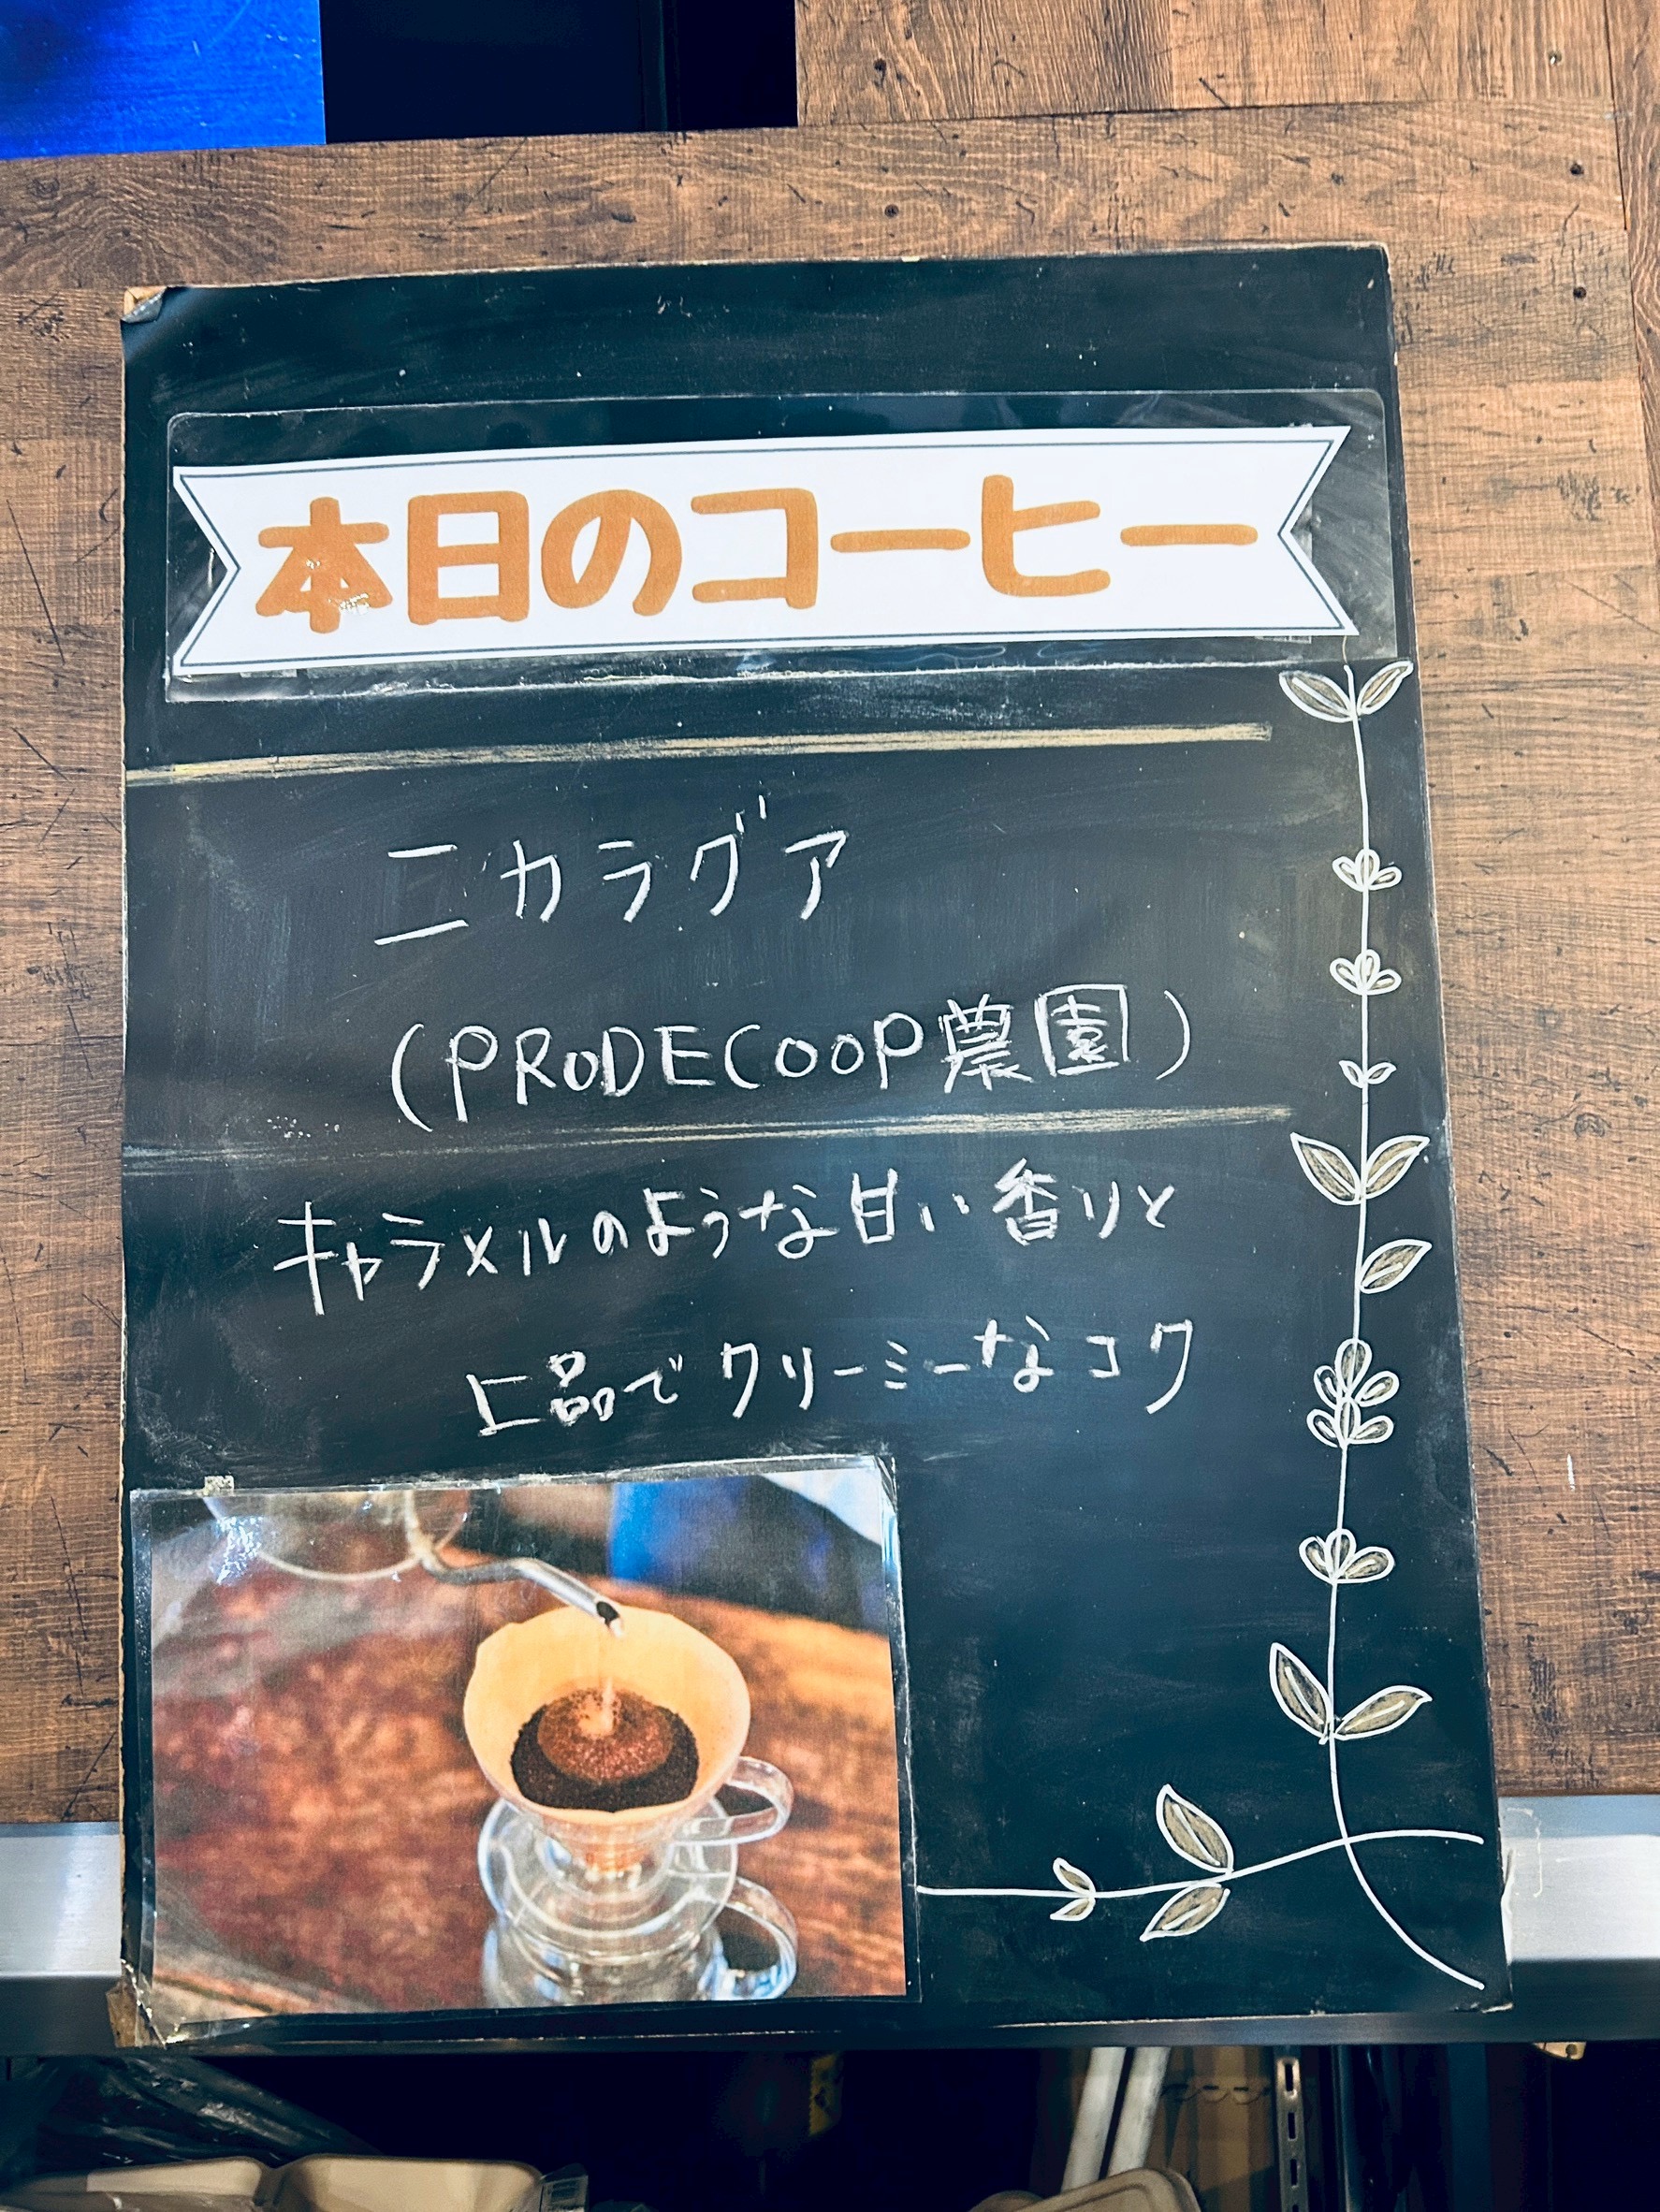 本日のコーヒー
ニカラグア
(PRODECOOP農園)
キャラメルのような甘い香りと
上品でクリーミーなコク